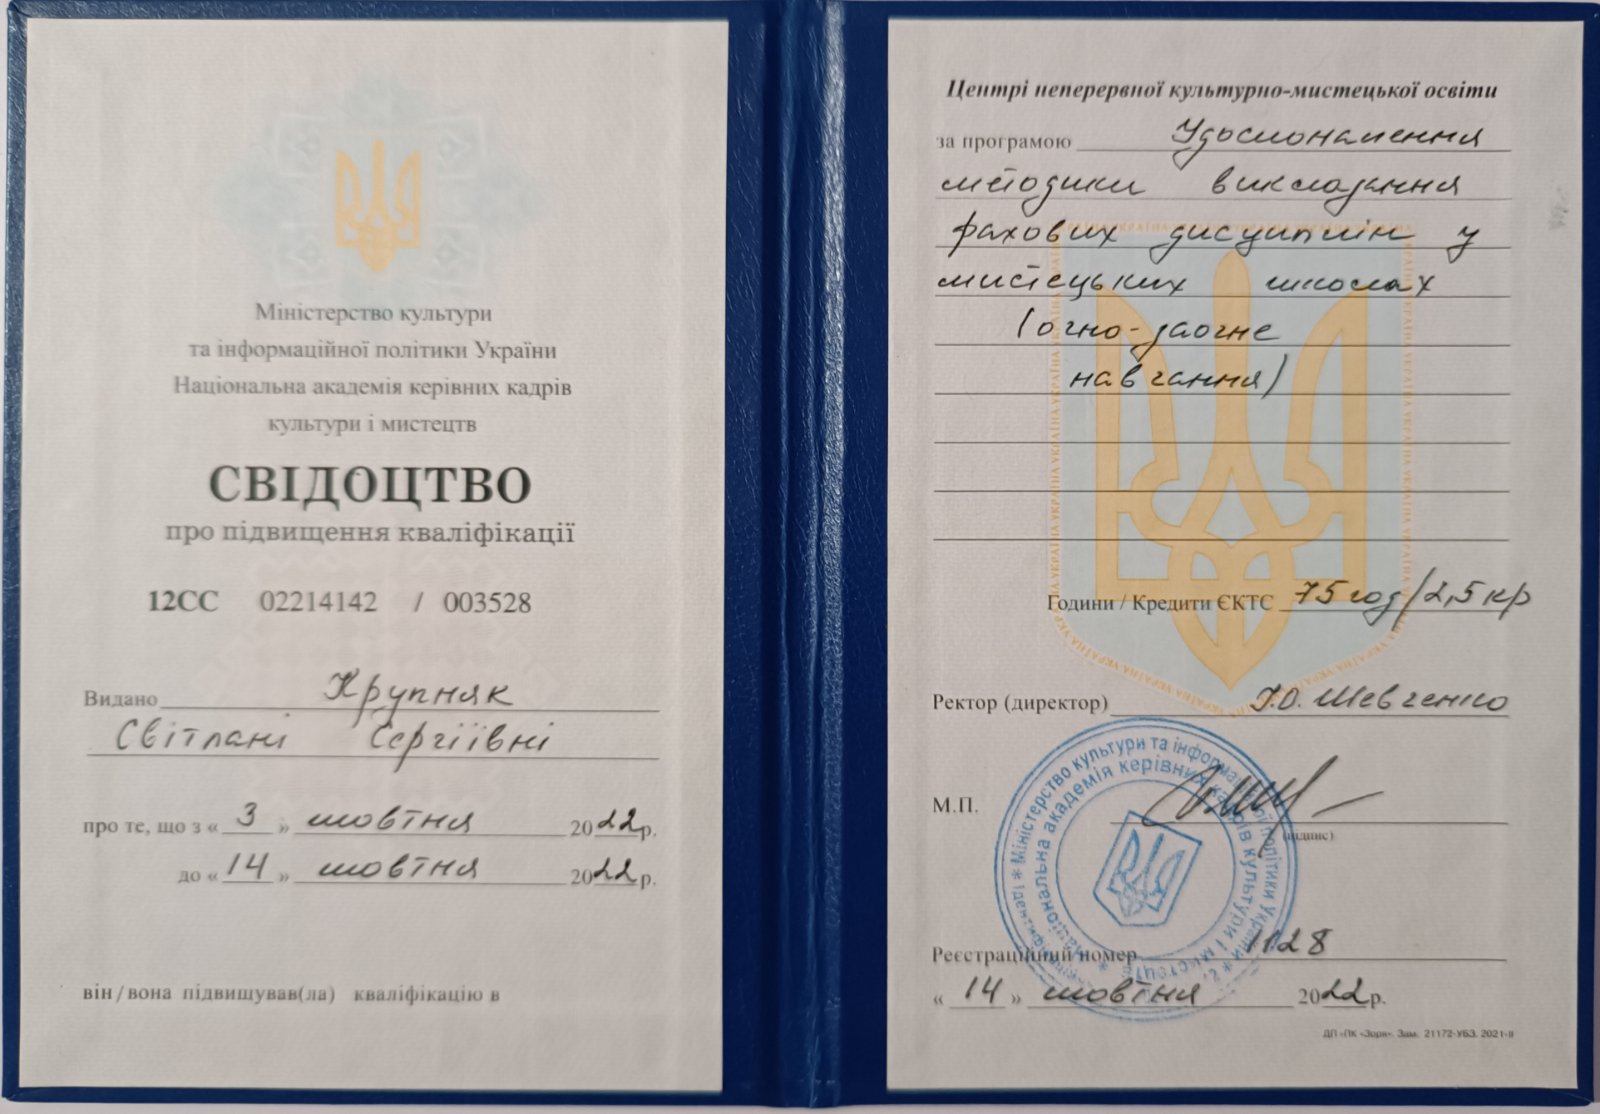 Міністерство культури
та інформаційної політики України
Національна академія керівних кадрів
культури і мистецтв
СВІДОЦТВО
про підвищення кваліфікації
12СС 02214142 / 003528
Видано Крупняк
Світлані Сергіївні
про те, що з « 3 » жовтня 2022р.
до « 14 » жовтня 2022р.
він/вона підвищував(ла) кваліфікацію в
Центрі неперервної культурно-мистецької освіти
за програмою Удосконалення
методики викладання
фахових дисциплін у
мистецьких школах
(очно-заочне
навчання)
Години / Кредити ЄКТС 75 год/2,5 кр
Ректор (директор) Шевченко
М.П.
(підпис)
Міністерство культури та інформаційної політики України
Національна академія керівних кадрів культури і мистецтв
Реєстраційний номер 1128
« 14 » жовтня 2022р.
ДП «ПК «Зоря». Зам. 21172-УБЗ. 2021-ІІ